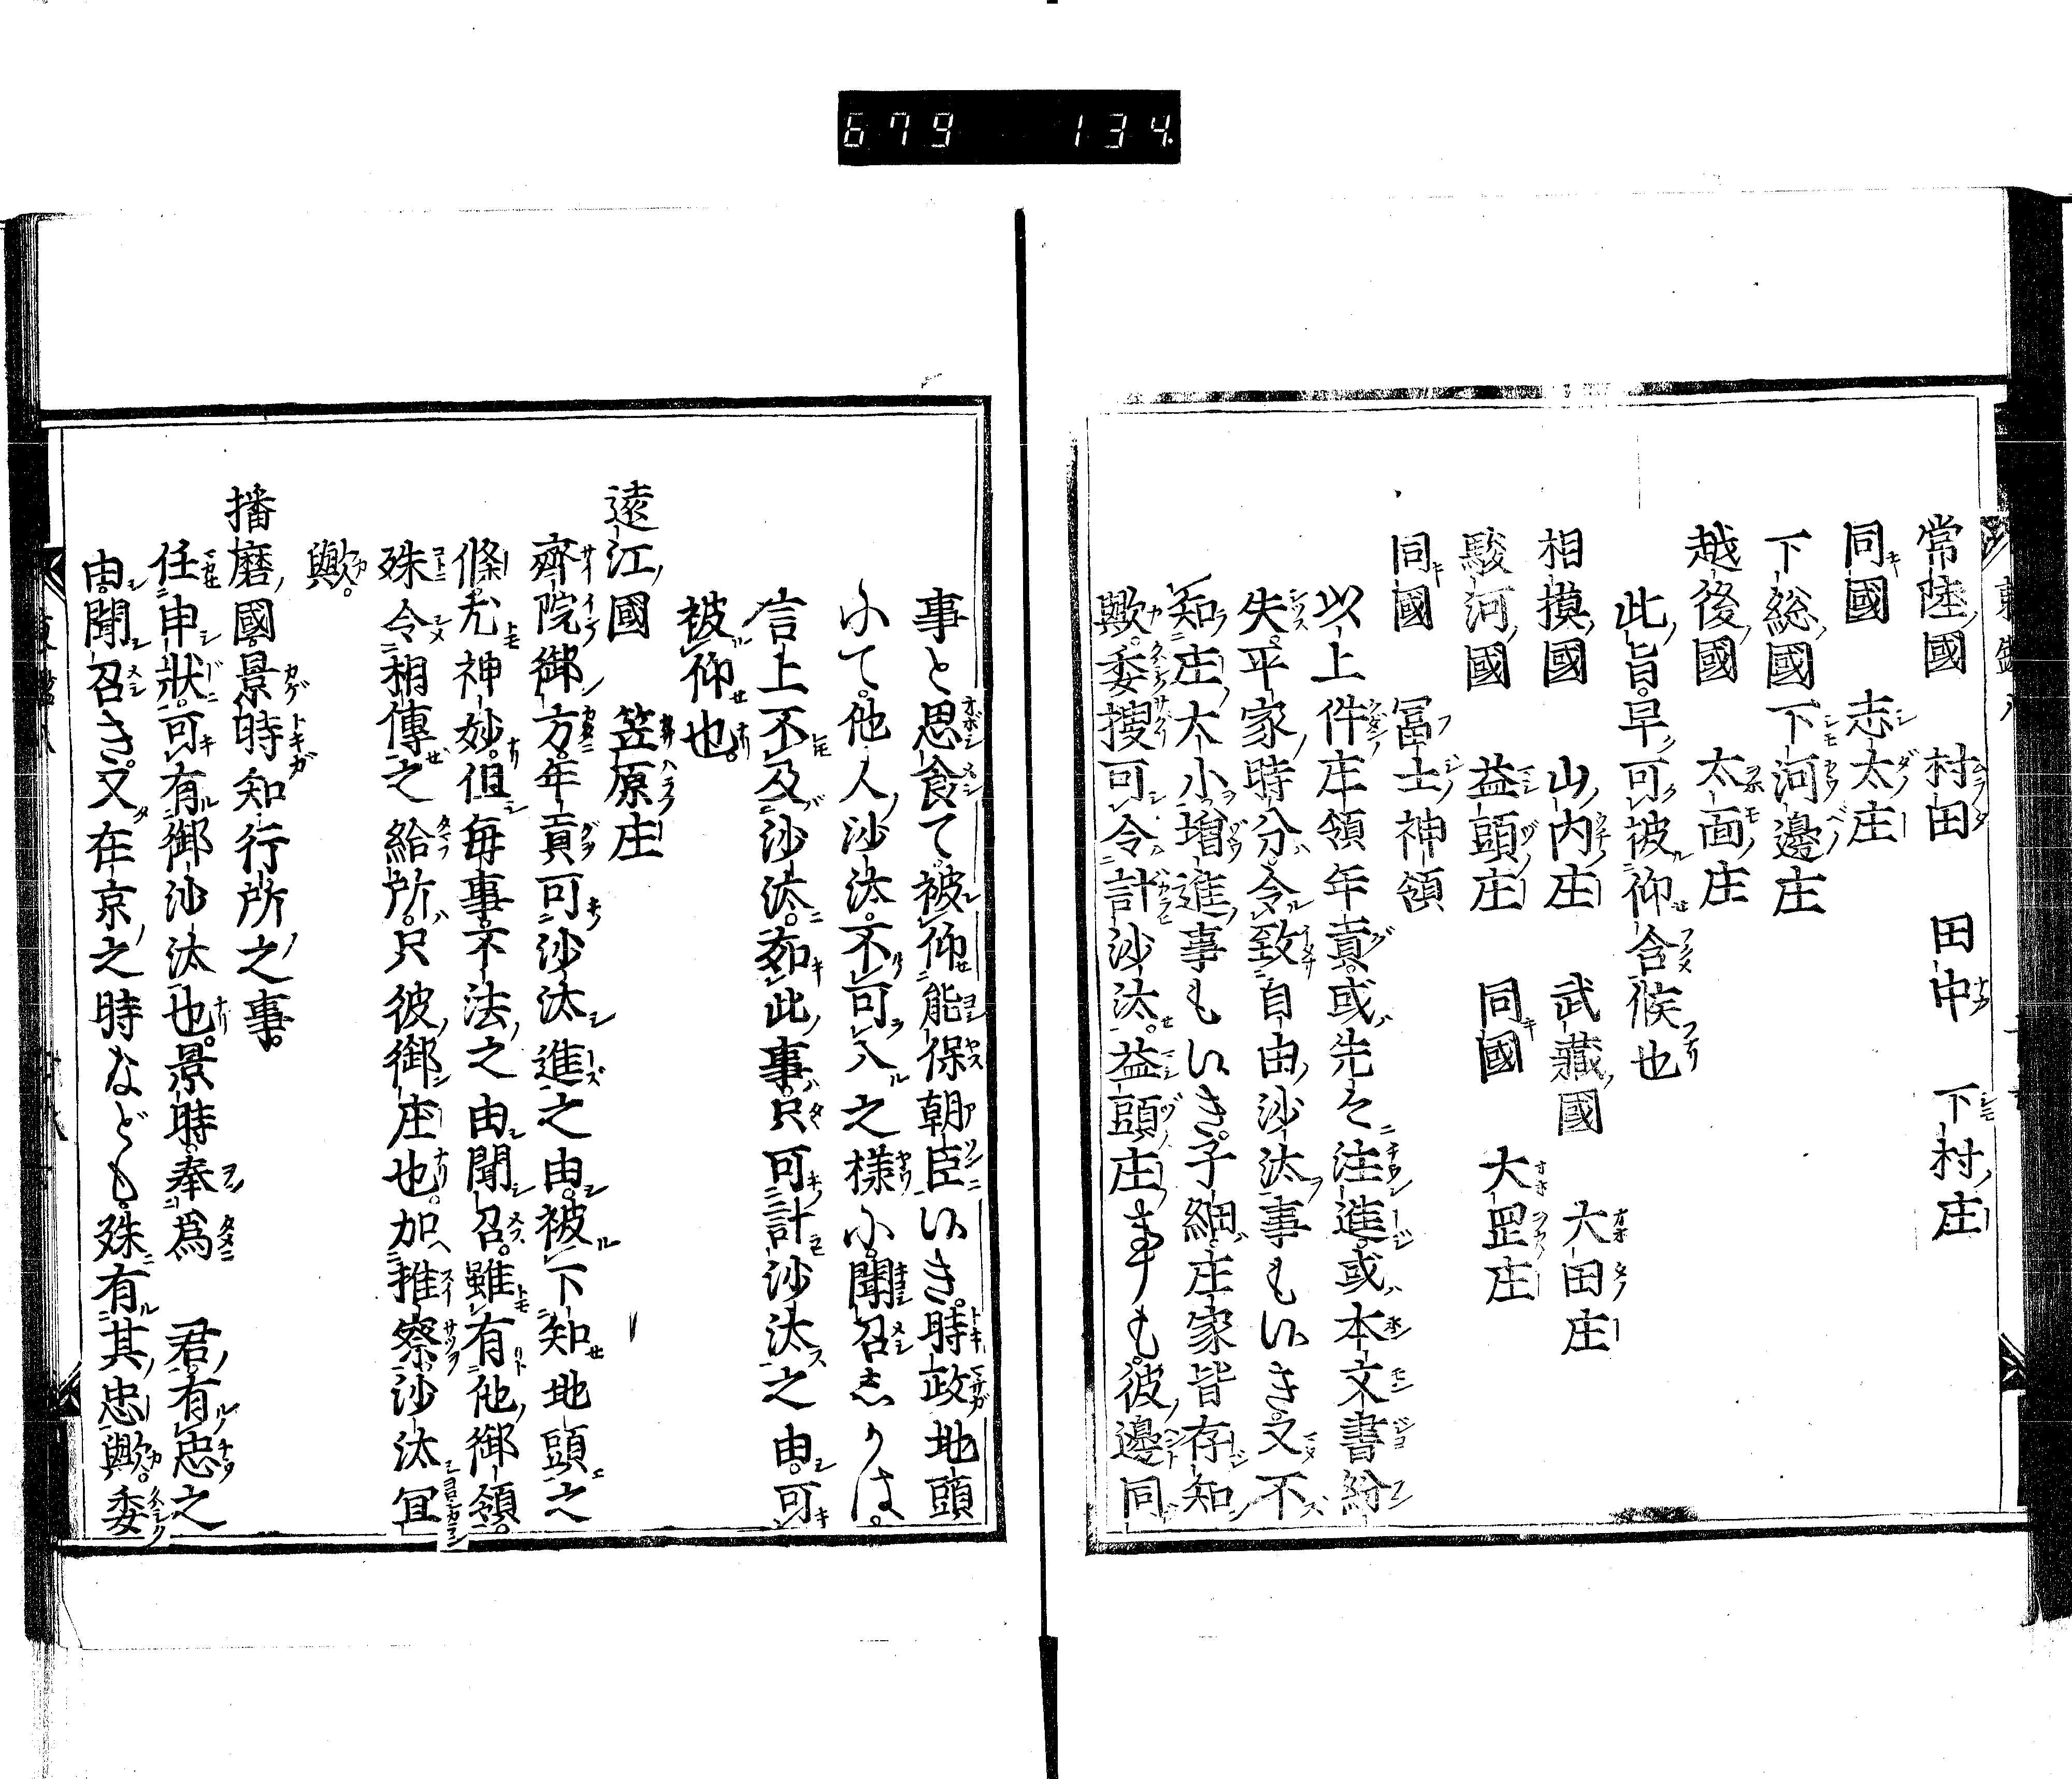 679 134
常陸國 村田 田中 下村庄
同國 志太庄
下総國下河邊庄
越後國 太面庄
此旨早可被仰含候也
相摸國 山内庄 武藏國 大田庄
駿河國 益頭庄 同國 大罡庄
同國 冨士神領
以上件庄領年貢或先々注進或本文書紛
失平家時分令致自由沙汰事もいき又不
知庄大小増進事もいき子細庄家皆存知
歟委捜可令計沙汰益頭庄事も彼邊同
事と思食て被仰能保朝臣いき時政地頭
にて他人沙汰不可入之様に聞召しかは
言上不及沙汰。於此事只可計沙汰之由可
被仰也
遠江國 笠原庄
齋院御方年貢可沙汰進之由被下知地頭之
條尤神妙但毎事不法之由聞召雖有他御領
殊令相傳之給所只彼御庄也。加推察沙汰冝
歟。
播磨國景時知行所之事。
任申狀可有御沙汰也。景時奉爲 君有忠之
由聞召き又在京之時なども殊有其忠歟。委